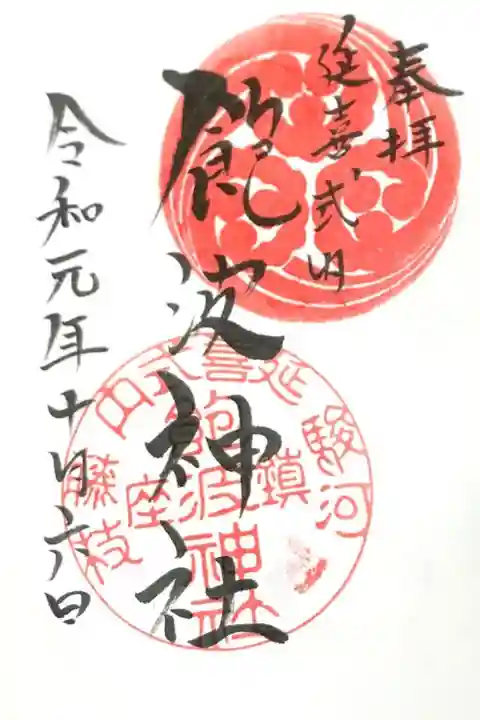 奉拝
延喜式内
飽波神社
令和元年十月六日
延喜式内
駿河
鎮座
藤枝
飽波神社